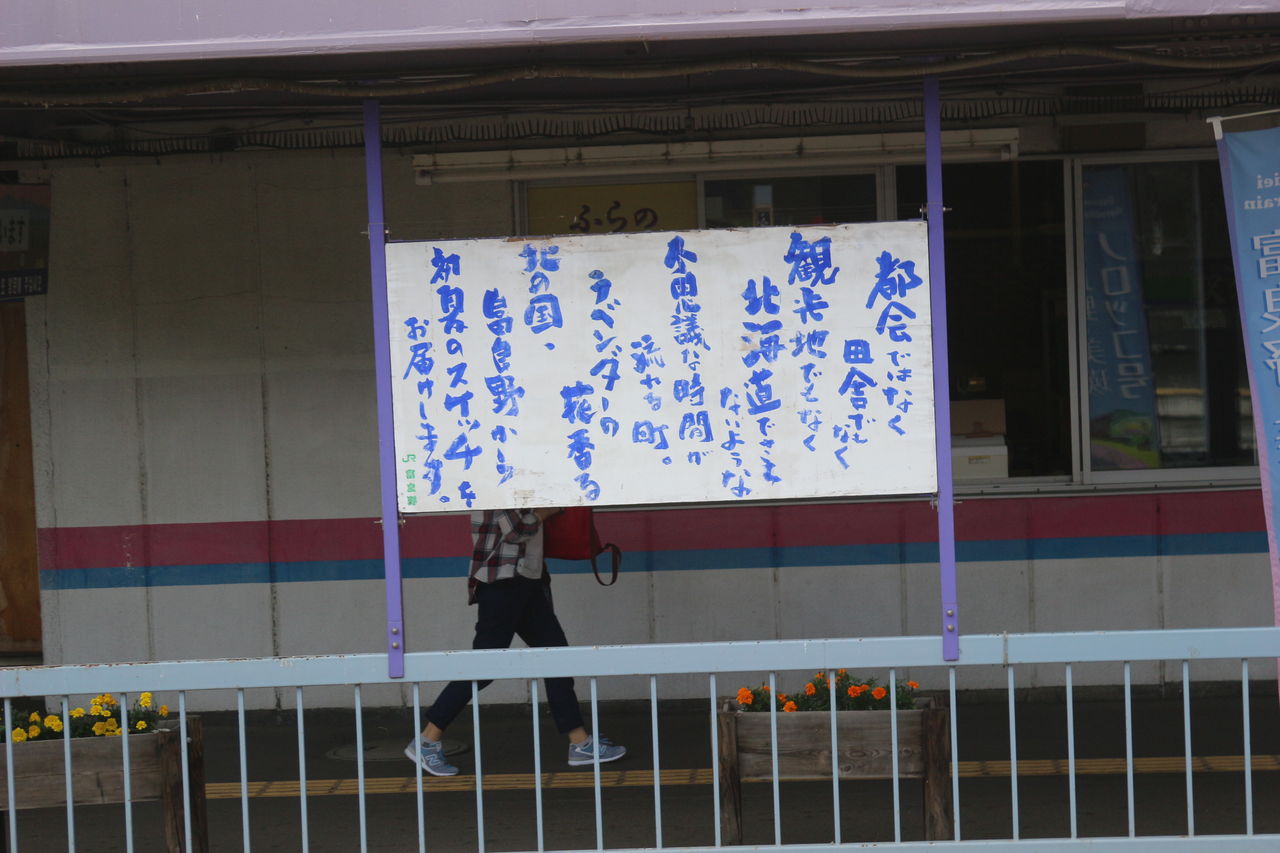 都会ではなく
田舎でもなく
観光地でもなく
北海道でさえ
ないような
不思議な時間が
流れる町。
ラベンダーの
花香る
北の国、
富良野から
初夏のスケッチを
お届けします。
ふらの
ノロッコ号
富良野
います